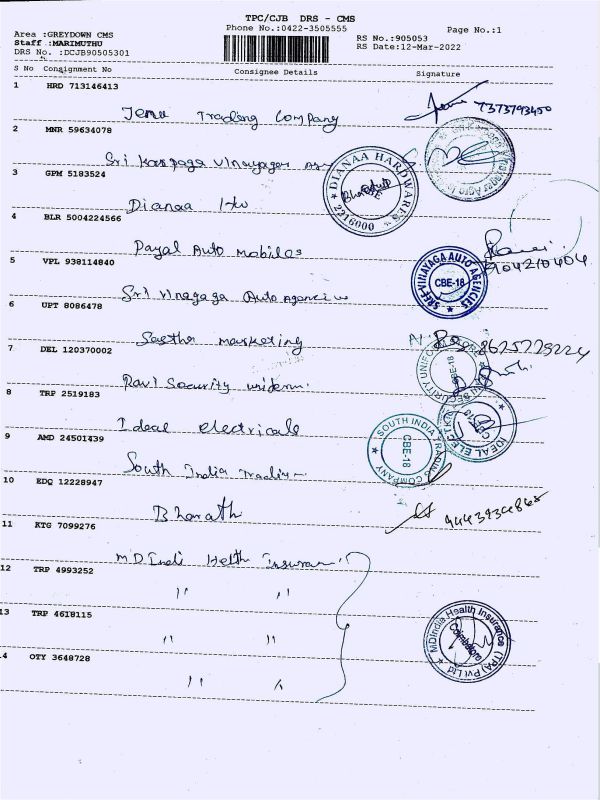 TPC/CJB DRS - CMS
Phone No.:0422-3505555
Page No.:1
Area :GREYDOWN CMS
Staff :MARIMUTHU
DRS No. :DCJB90505301
RS No.:905053
RS Date:12-Mar-2022
S No Consignment No Consignee Details Signature
1 HRD 713146413
Jenu Trading Company 7373793450
2 MNR 59634078
Sri Karpaga Vinayagar
3 GPM 5183524
DIANAA HARDWARES
2216000
Dianaa
4 BLR 5004224566
Payal Auto mobiles
5 VPL 938114840
SREE VINAYAGA AUTO AGENCIES
CBE-18
Sri Vinayaga Auto Agencies
6 UPT 8086478
Saetha marketing
7 DEL 120370002
CBE-18
Ravi Security uniform
8 TRP 2519183
IDEAL ELECTRICALS
Ideal electricals
9 AMD 24501439
SOUTH INDIA TRADING COMPANY
CBE-18
South India Trading
10 EDQ 12228947
Bharath
11 KTG 7099276
M.D. India Helth Insuran
12 TRP 4993252
" "
13 TRP 4618115
" "
MDIndia Health Insurance (TPA) Pvt Ltd
Coimbatore
4 OTY 3648728
" "